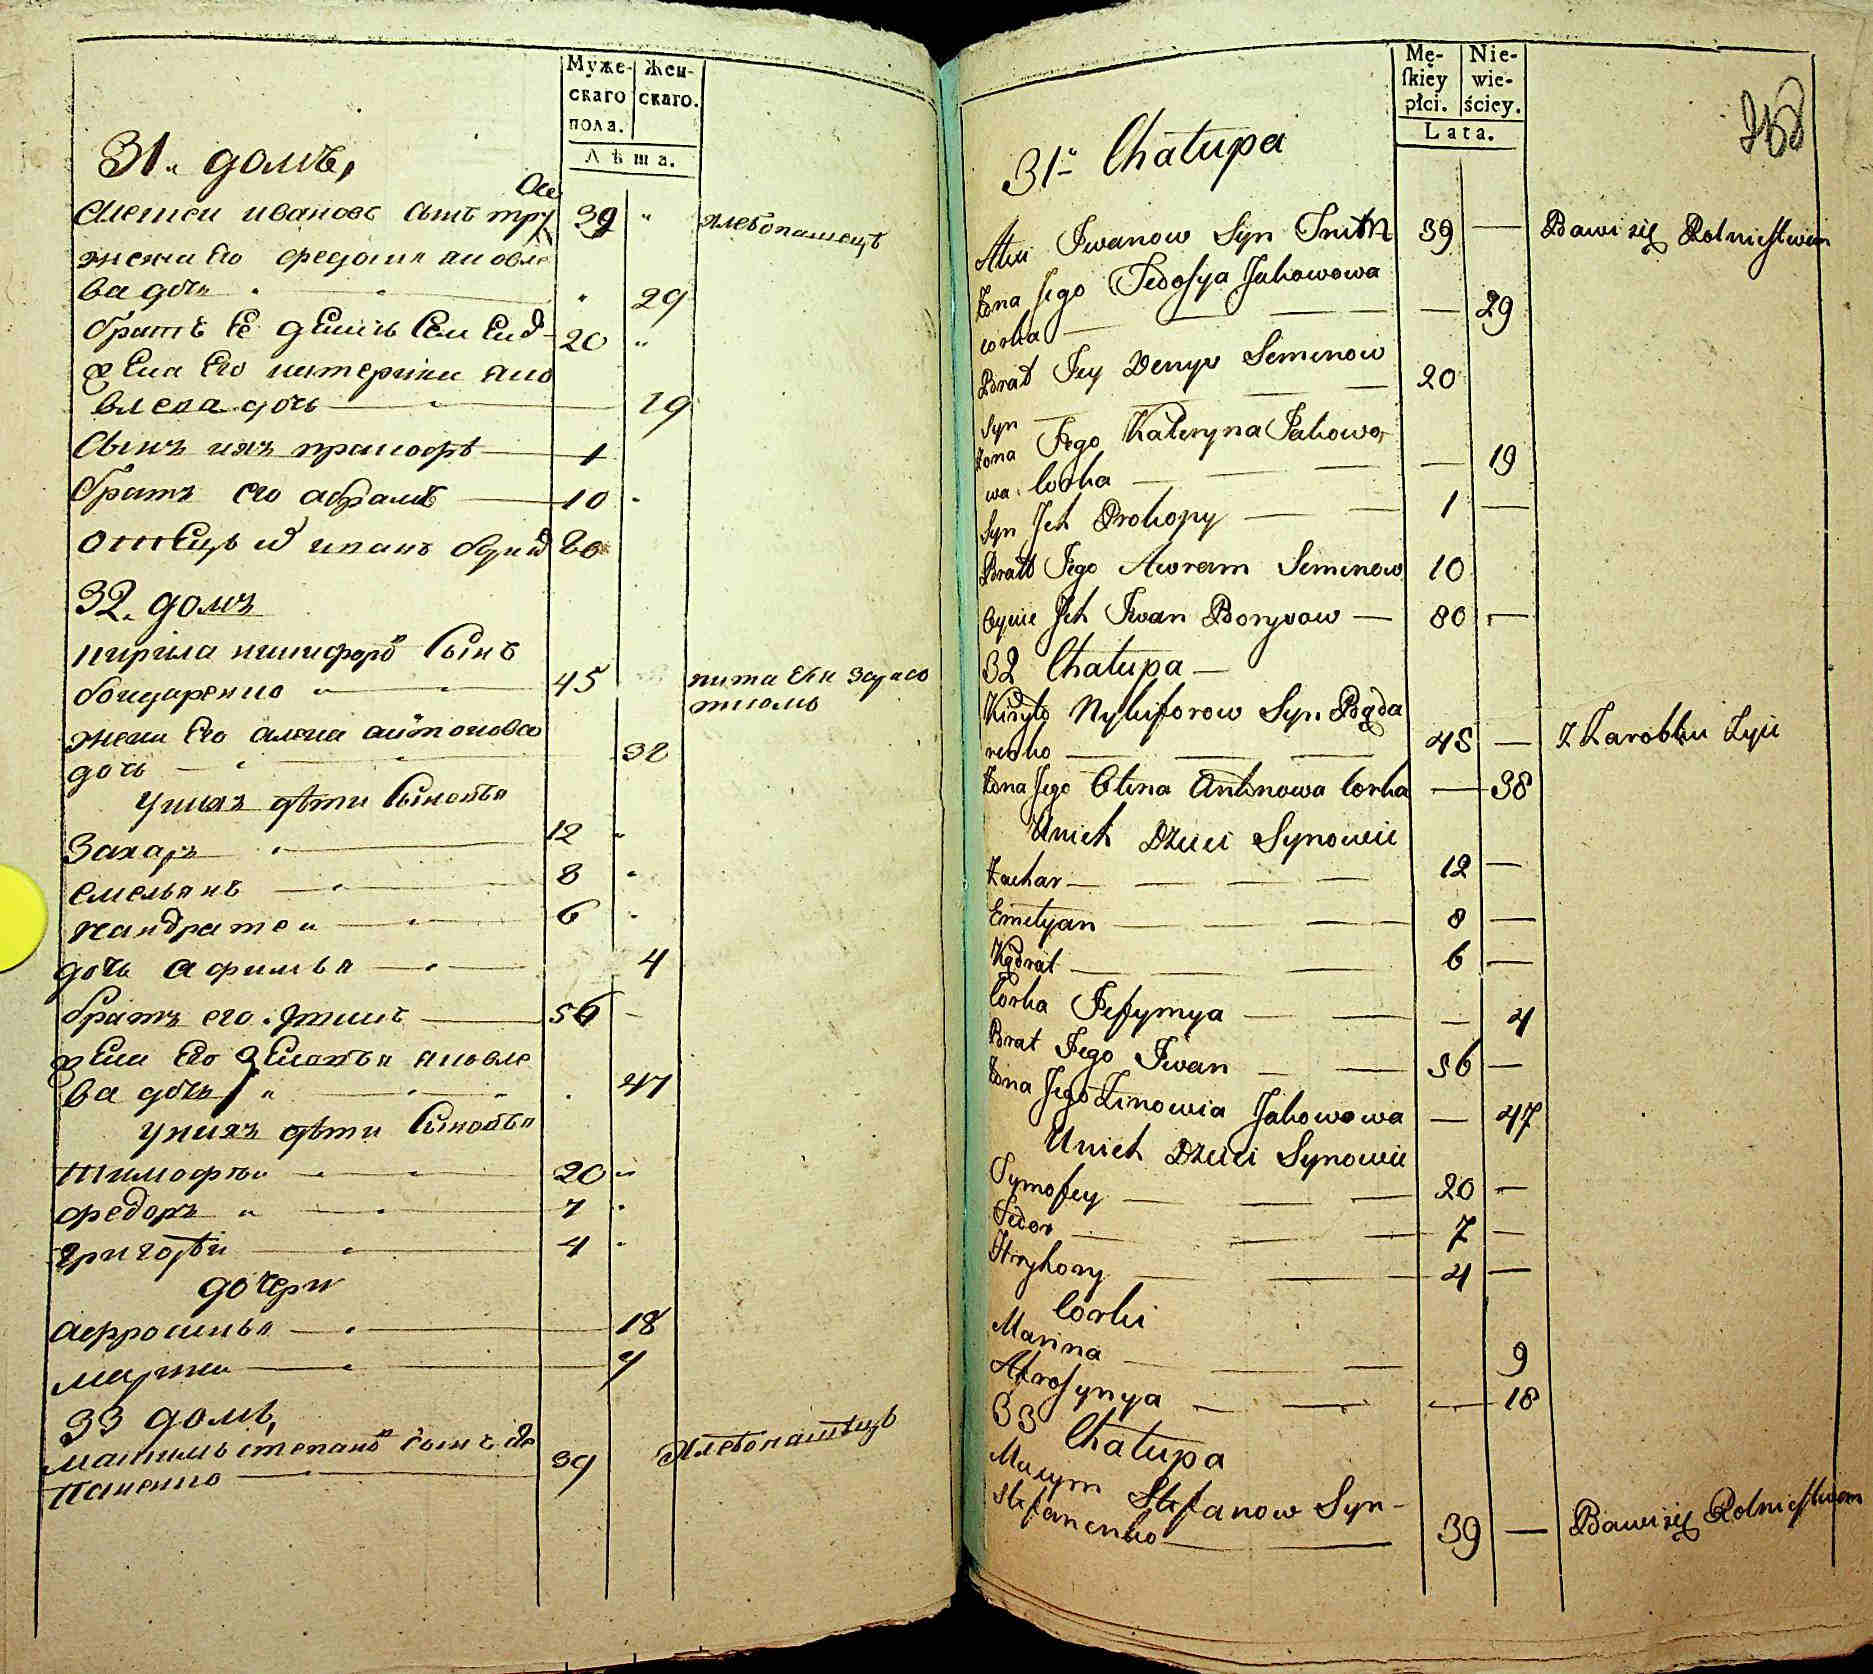 Муже-
скаго
пола.
Жен-
скаго.
Лѣта.
31. домъ,
Алексеи ивановъ сынъ
39 „ хлебопашецъ
жена Его федосия яковле
ва дочь „ 29
братъ Её денисъ
20 „
жена Его катерина яко
влева дочь 19
Сынъ ихъ прокофе 1
братъ его абрамъ 10 „
отецъ иванъ 80
32. домъ
кирила никифоро сынъ
бондаренко 45
жена Его алена антонова
дочь 38
у нихъ дѣти Сыновья
Захаръ 12 „
емельянъ 8 „
кандратеи 6 „
дочь афимья 4
братъ его 56
жена Его зеновья яковле
ва дочь 47
у нихъ дѣти Сыновья
тимофеи 20 „
федоръ 7 „
григореи 4 „
дочери
афросинья 18
марина 9
33 домъ,
максимъ степано сынъ сте
паненко 39 хлебопашецъ
Mę-
skiey
płci.
Nie-
wie-
ściey.
Lata.
31 Chałupa
Iwanow Syn 39 — Bawi się Rolnictwem
Żona Jego Fedosya Jakowowa
corka — 29
Brat Jey Denys Semenow
Syn 20
Żona Jego Kateryna Jakowo
wa Corka — 19
Syn Jch Prokopy 1 —
Brat Jego Awram Semenow 10
Oyciec Jch Iwan Borysow — 80 —
32 Chałupa —
Kiryło Nykiforow Syn Bąda
renko 45 — Z Zarobku Żyie
Żona Jego Olena Antonowa Corka — 38
U nich Dzieci Synowie
Zachar 12 —
Emelyan 8 —
Kądrat 6 —
Corka Jefymya — 4
Brat Jego Iwan 56 —
Żona Jego Zinowia Jakowowa — 47
U nich Dzieci Synowie
Tymofey 20 —
Fedor 7 —
Hryhory 4 —
Corki
Marina 9
Afrosynya — 18
33 Chałupa
Maxym Stefanow Syn
Stefanenko 39 — Bawi się Rolnictwem